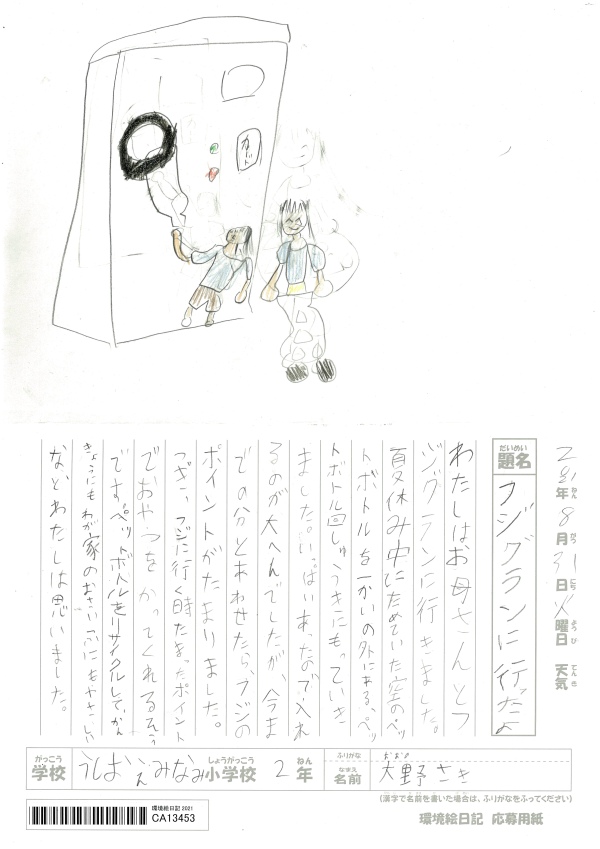 カット
2021年8月31日火曜日 天気
ねん がつ にち ようび てんき
だいめい
題名
フジグランに行ったよ
わたしはお母さんとフ
ジグランに行きました。
夏休み中にためていた空のペッ
トボトルを一かいの外にある、ペッ
トボトル回しゅうきにもっていき
ました。いっぱいあったので入れ
るのが大へんでしたが、今ま
での分とあわせたら、フジの
ポイントがたまりました。
こざっ、フジに行く時たまったポイント
でおやつをかってくれるそう
です。ペットボトルをリサイクルして、かん
きょうにもわが家のおさいふにもやさしい
なとわたしは思いました。
がっこう しょうがっこう ねん
学校 うしおえみなみ小学校 2年
ふりがな おおの
なまえ
名前 大野さき
(漢字で名前を書いた場合は、ふりがなをふってください)
環境絵日記 2021
CA13453
環境絵日記 応募用紙